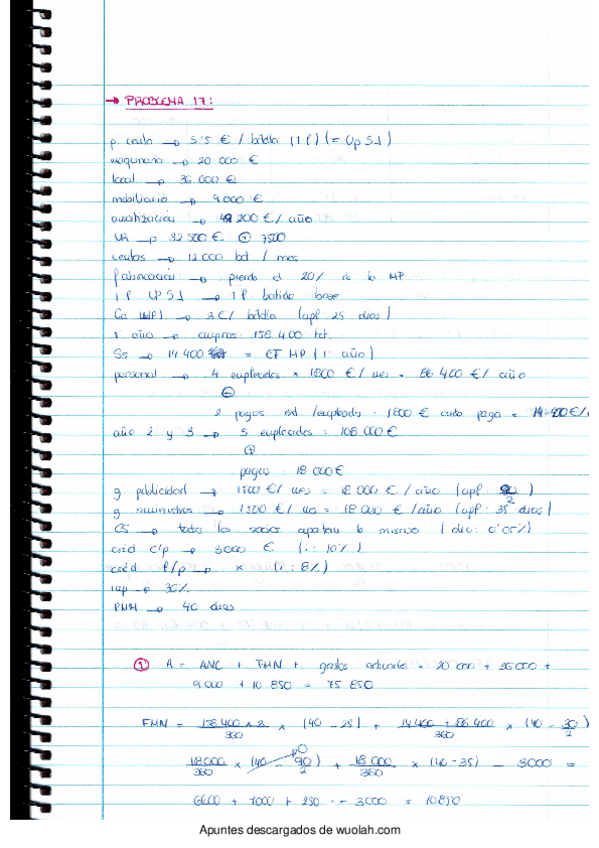 → PROBLEMA 17:
p. venta → 5'5 € / botella (1 l) (= Up S.1)
maquinaria → 20 000 €
local → 36 000 €
mobiliario → 9000 €
amortización → 4200 € / año
VR → 32 500 € + 7500
ventas → 12 000 bot / mes
fabricación → pierde el 20% de la MP
1 l UP S.1 → 1 l batido base
Ca (MP) → 3 € / botella (apl 25 dias)
1 año → compras 158 400 bot.
Ss → 14 400 = CT MP (1º año)
personal → 4 empleados × 1800 € / mes = 86 400 € / año
+
2 pagas ext /empleado · 1800 € cada paga = 14 400 € /
año 2 y 3 → 5 empleados : 108 000 €
+
pagas : 18 000 €
g. publicidad → 1500 € / mes = 18 000 € / año (apl 90/2)
g suministros → 1500 € / mes = 18 000 € / año (apl : 35 dias)
CS → todos los socios aportan lo mismo (div: 0'05%)
créd c/p → 3000 € (i : 10%)
créd l/p → x (i : 8%)
imp → 30%
PMM → 40 dias
① A = ANC + FMN + gastos = 20 000 + 36 000 +
9 000 + 10 850 = 75 850
FMN = 158 400 × 3 / 360 × (40 - 25) + 14 400 + 86 400 / 360 × (40 - 30/2)
18 000 / 360 × (40 - 90/2) 0 + 18 000 / 360 × (40 - 35) - 3000 =
6600 + 7000 + 250 - 3000 = 10850
Apuntes descargados de wuolah.com